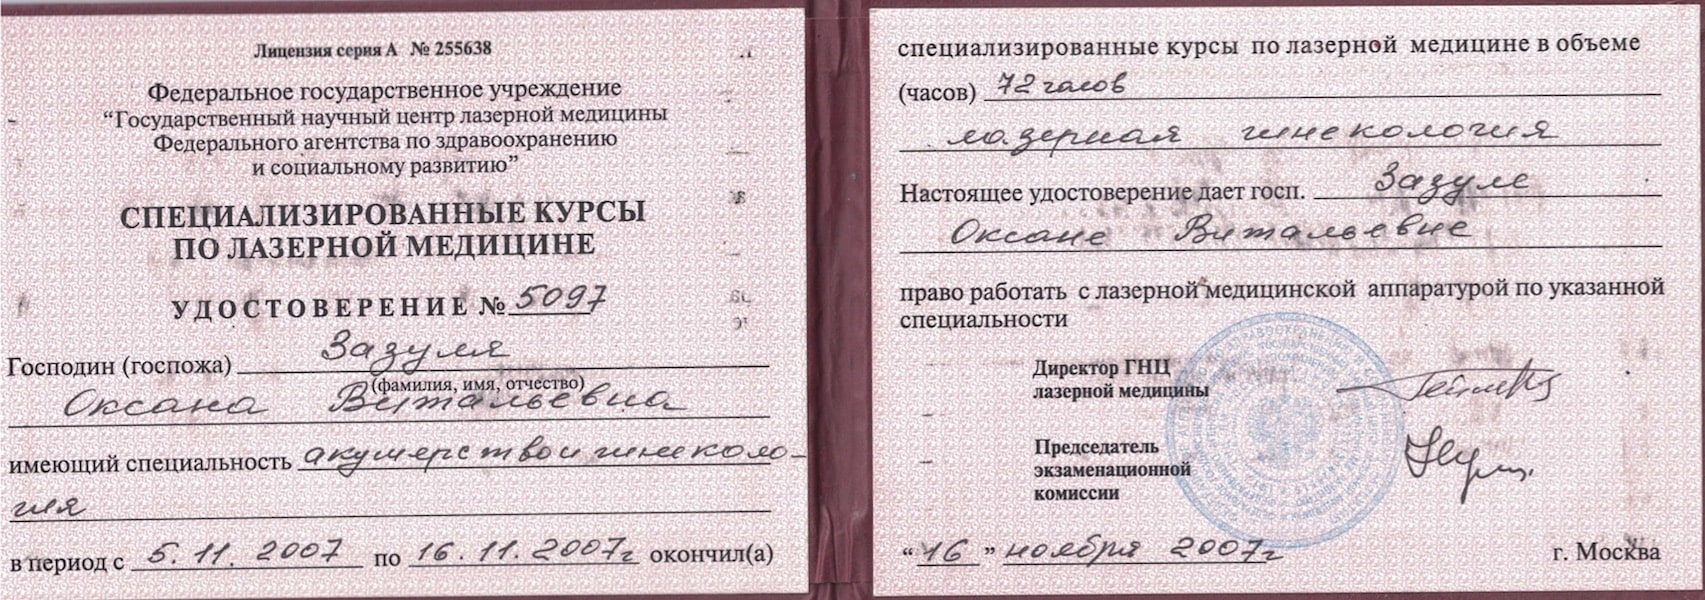 Лицензия серия А № 255638
Федеральное государственное учреждение
“Государственный научный центр лазерной медицины
Федерального агентства по здравоохранению
и социальному развитию”
СПЕЦИАЛИЗИРОВАННЫЕ КУРСЫ
ПО ЛАЗЕРНОЙ МЕДИЦИНЕ
УДОСТОВЕРЕНИЕ № 5097
Господин (госпожа) Зазуля
(фамилия, имя, отчество)
Оксана Витальевна
имеющий специальность акушерство и гинеколо-
гия
в период с 5.11.2007 по 16.11.2007г окончил(а)
специализированные курсы по лазерной медицине в объеме
(часов) 72 часов
лазерная гинекология
Настоящее удостоверение дает госп. Зазуле
Оксане Витальевне
право работать с лазерной медицинской аппаратурой по указанной
специальности
Директор ГНЦ
лазерной медицины
Председатель
экзаменационной
комиссии
“16” ноября 2007г г. Москва